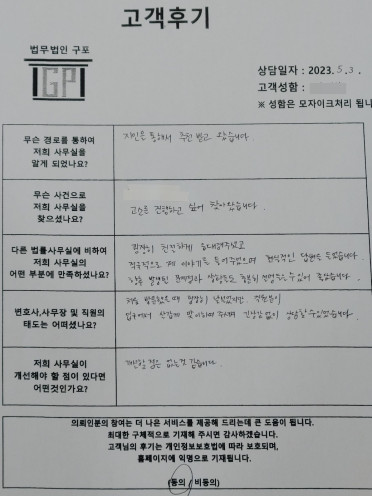 고객후기
법무법인 구포
GP
상담일자 : 2023. 5. 3.
고객성함 :
※ 성함은 모자이크처리 됩니
무슨 경로를 통하여
저희 사무실을
알게 되었나요?
지인을 통해서 추천 받고 왔습니다.
무슨 사건으로
저희 사무실을
찾으셨나요?
고소를 진행하고 싶어 찾아왔습니다.
다른 법률사무실에 비하여
저희 사무실의
어떤 부분에 만족하셨나요?
굉장히 친절하게 응대해주셨고
적극적으로 제 이야기를 들어주셨으며 현실적인 답변을
변호사,사무장 및 직원의
태도는 어떠셨나요?
처음 방문했을 때 굉장히
입구에서 반갑게 맞이하여 주셔서 긴장감 없이 상담할 수 있었습니다.
저희 사무실이
개선해야 할 점이 있다면
어떤것인가요?
개선할 점은 없는것 같습니다.
의뢰인분의 참여는 더 나은 서비스를 제공해 드리는데 큰 도움이 됩니다.
최대한 구체적으로 기재해 주시면 감사하겠습니다.
고객님의 후기는 개인정보보호법에 따라 보호되며,
홈페이지에 익명으로 기재됩니다.
(동의 / 비동의)